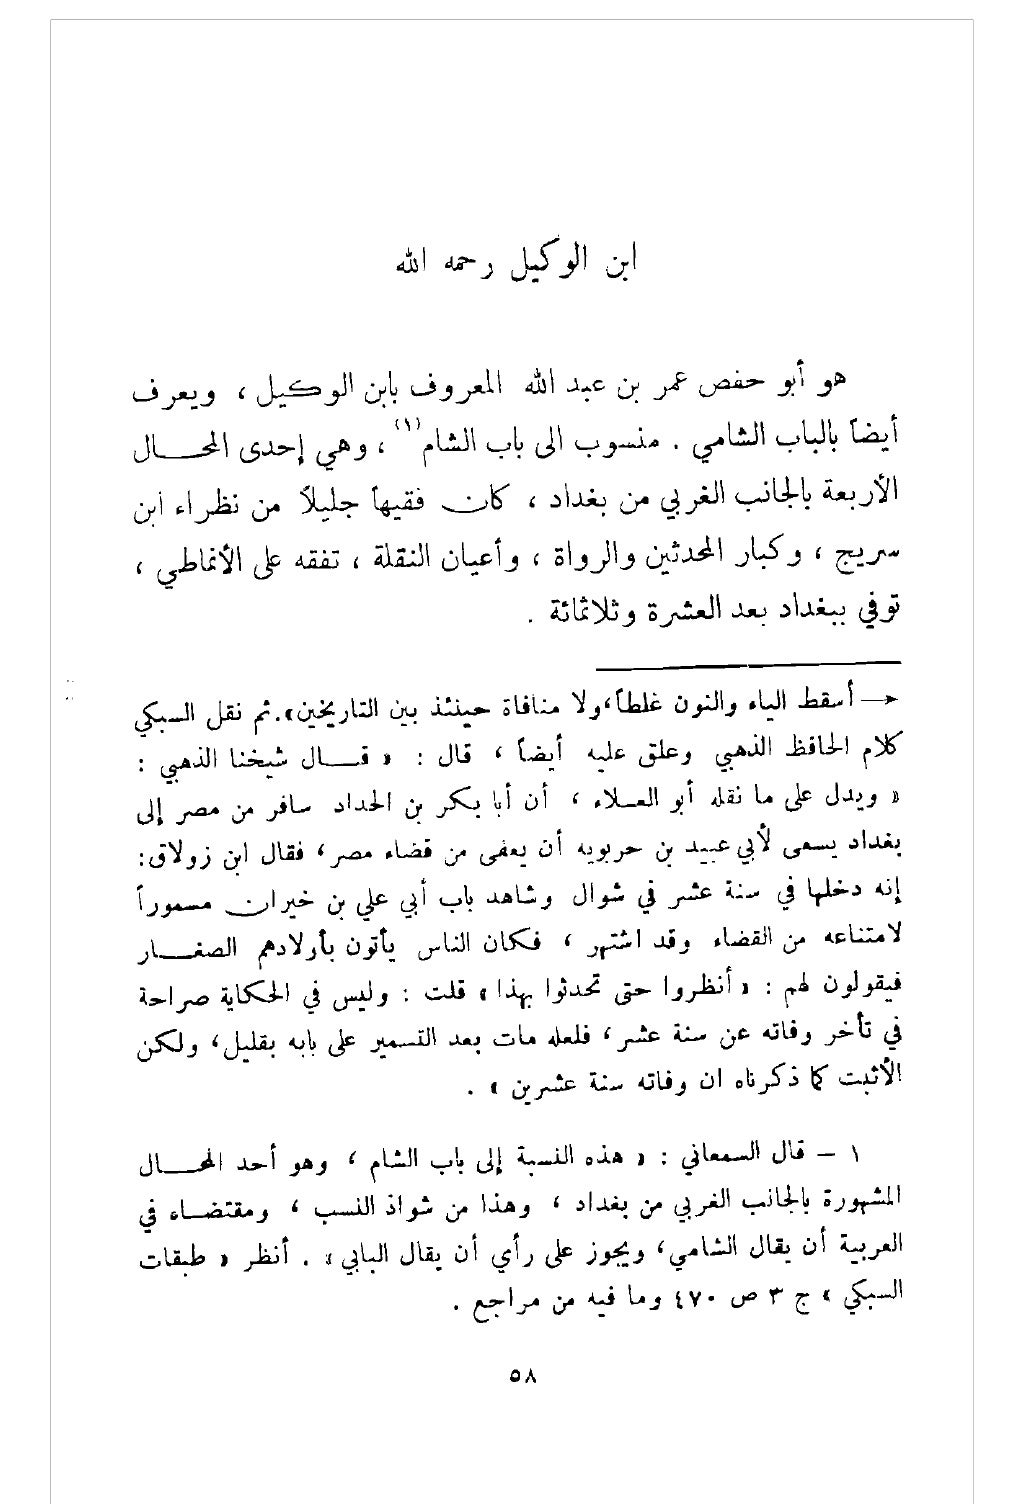 ابن الوكيل رحمه الله
هو أبو حفص عمر بن عبد الله المعروف بابن الوكيل ، ويعرف
أيضاً بالباب الشامي . منسوب الى باب الشام(١) ، وهي إحدى المحال
الأربعة بالجانب الغربي من بغداد ، كان فقيهاً جليلاً من نظراء ابن
سريج ، وكبار المحدثين والرواة ، وأعيان النقلة ، تفقه على الأنماطي ،
توفي ببغداد بعد العشرة وثلاثمائة .
← أسقط الياء والنون غلطاً ، ولا منافاة حينئذ بين التاريخين » . ثم نقل السبكي
كلام الحافظ الذهبي وعلق عليه أيضاً ، قال : « قال شيخنا الذهبي :
« ويدل على ما نقله أبو العلاء ، أن أبا بكر بن الحداد سافر من مصر إلى
بغداد يسعى لأبي عبيد بن حربويه أن يعفى من قضاء مصر ، فقال ابن زولاق :
إنه دخلها في سنة عشر في شوال وشاهد باب أبي علي بن خيران مسموراً
لامتناعه من القضاء وقد اشتهر ، فكان الناس يأتون بأولادهم الصغار
فيقولون لهم : « أنظروا حتى تحدثوا بهذا » قلت : وليس في الحكاية صراحة
في تأخر وفاته عن سنة عشر ، فلعله مات بعد التسمير على بابه بقليل ، ولكن
الأثبت كما ذكرناه ان وفاته سنة عشرين » .
١ – قال السمعاني : « هذه النسبة إلى باب الشام ، وهو أحد المحال
المشهورة بالجانب الغربي من بغداد ، وهذا من شواذ النسب ، ومقتضاء في
العربية أن يقال الشامي ، ويجوز على رأي أن يقال البابي » . أنظر « طبقات
السبكي » ج ٣ ص ٤٧٠ وما فيه من مراجع .
٥٨